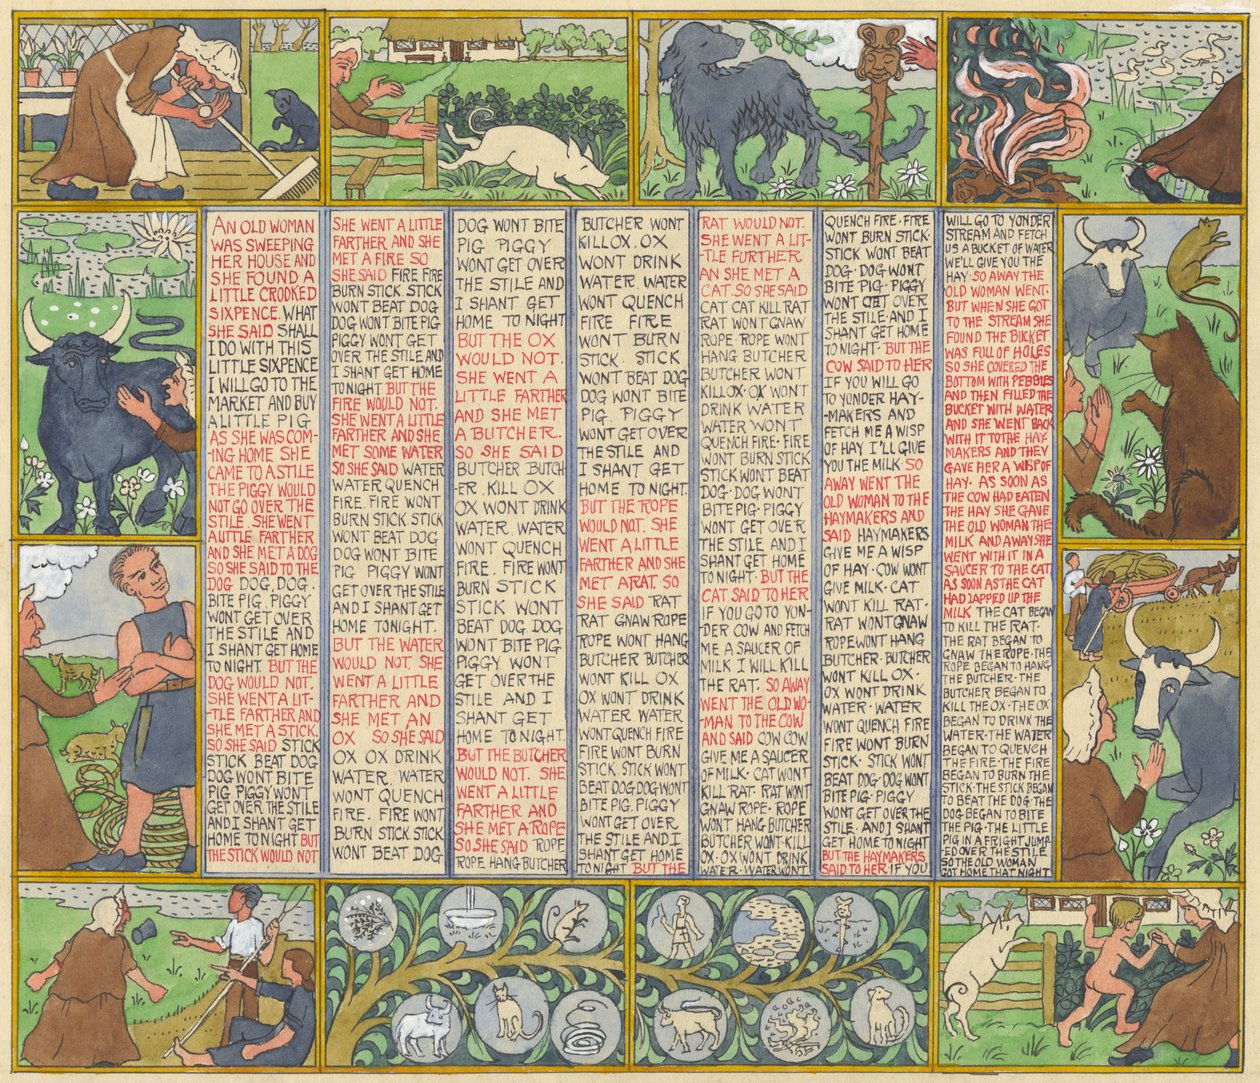 AN OLD WOMAN
WAS SWEEPING
HER HOUSE AND
SHE FOUND A
LITTLE CROOKED
SIXPENCE. WHAT
SHE SAID SHALL
I DO WITH THIS
LITTLE SIXPENCE
I WILL GO TO THE
MARKET AND BUY
A LITTLE PIG.
AS SHE WAS COM-
ING HOME SHE
CAME TO A STILE
THE PIGGY WOULD
NOT GO OVER THE
STILE. SHE WENT
A LITTLE FARTHER
AND SHE MET A DOG
SO SHE SAID TO THE
DOG DOG, DOG,
BITE PIG, PIGGY
WONT GET OVER
THE STILE AND
I SHANT GET HOME
TO NIGHT BUT THE
DOG WOULD NOT.
SHE WENT A LIT-
TLE FARTHER AND
SHE MET A STICK.
SO SHE SAID STICK
STICK BEAT DOG
DOG WONT BITE
PIG PIGGY WONT
GET OVER THE STILE
AND I SHANT GET
HOME TONIGHT BUT
THE STICK WOULD NOT
SHE WENT A LITTLE
FARTHER AND SHE
MET A FIRE SO
SHE SAID FIRE FIRE
BURN STICK STICK
WONT BEAT DOG
DOG WONT BITE PIG
PIGGY WONT GET
OVER THE STILE AND
I SHANT GET HOME
TONIGHT BUT THE
FIRE WOULD NOT.
SHE WENT A LITTLE
FARTHER AND SHE
MET SOME WATER
SO SHE SAID WATER
WATER QUENCH
FIRE. FIRE WONT
BURN STICK STICK
WONT BEAT DOG
DOG WONT BITE
PIG PIGGY WONT
GET OVER THE STILE
AND I SHANT GET
HOME TONIGHT.
BUT THE WATER
WOULD NOT SHE
WENT A LITTLE
FARTHER AND
SHE MET AN
OX SO SHE SAID
OX OX DRINK
WATER. WATER
WONT QUENCH
FIRE. FIRE WONT
BURN STICK STICK
WONT BEAT DOG
DOG WONT BITE
PIG PIGGY
WONT GET OVER
THE STILE AND
I SHANT GET
HOME TO NIGHT
BUT THE OX
WOULD NOT.
SHE WENT A
LITTLE FARTHER
AND SHE MET
A BUTCHER.
SO SHE SAID
BUTCHER BUTCH
ER. KILL OX
OX WONT DRINK
WATER. WATER
WONT QUENCH
FIRE. FIRE WONT
BURN STICK
STICK WONT
BEAT DOG. DOG
WONT BITE PIG
PIGGY WONT
GET OVER THE
STILE AND I
SHANT GET
HOME TO NIGHT.
BUT THE BUTCHER
WOULD NOT. SHE
WENT A LITTLE
FARTHER AND
SHE MET A ROPE
SO SHE SAID ROPE
ROPE HANG BUTCHER
BUTCHER WONT
KILL OX. OX
WONT DRINK
WATER WATER
WONT QUENCH
FIRE FIRE
WONT BURN
STICK STICK
WONT BEAT DOG
DOG WONT BITE
PIG. PIGGY
WONT GET OVER
THE STILE AND
I SHANT GET
HOME TO NIGHT.
BUT THE ROPE
WOULD NOT. SHE
WENT A LITTLE
FARTHER AND SHE
MET A RAT SO
SHE SAID RAT
RAT GNAW ROPE
ROPE WONT HANG
BUTCHER BUTCHER
WONT KILL OX
OX WONT DRINK
WATER WATER
WONT QUENCH FIRE
FIRE WONT BURN
STICK. STICK WONT
BEAT DOG DOG WONT
BITE PIG. PIGGY
WONT GET OVER
THE STILE AND I
SHANT GET HOME
TO NIGHT BUT THE
RAT WOULD NOT.
SHE WENT A LIT-
TLE FURTHER.
AN SHE MET A
CAT. SO SHE SAID
CAT CAT KILL RAT
RAT WONT GNAW
ROPE · ROPE WONT
HANG BUTCHER
BUTCHER WONT
KILL OX · OX WONT
DRINK WATER
WATER WONT
QUENCH FIRE · FIRE
WONT BURN STICK
STICK WONT BEAT
DOG · DOG WONT
BITE PIG · PIGGY
WONT GET OVER
THE STILE AND I
SHANT GET HOME
TO NIGHT. BUT THE
CAT SAID TO HER
IF YOU GO TO YON-
DER COW AND FETCH
ME A SAUCER OF
MILK I WILL KILL
THE RAT. SO AWAY
WENT THE OLD WO-
MAN TO THE COW
AND SAID COW COW
GIVE ME A SAUCER
OF MILK · CAT WONT
KILL RAT · RAT WONT
GNAW ROPE · ROPE
WONT HANG BUTCHER
BUTCHER WONT KILL
OX · OX WONT DRINK
WATER · WATER WONT
QUENCH FIRE · FIRE
WONT BURN STICK ·
STICK WONT BEAT
DOG · DOG WONT
BITE PIG · PIGGY
WONT GET OVER
THE STILE · AND I
SHANT GET HOME
TO NIGHT · BUT THE
COW SAID TO HER
IF YOU WILL GO
TO YONDER HAY-
MAKERS AND
FETCH ME A WISP
OF HAY I'LL GIVE
YOU THE MILK · SO
AWAY WENT THE
OLD WOMAN TO THE
HAYMAKERS AND
SAID HAYMAKERS
GIVE ME A WISP
OF HAY · COW WONT
GIVE MILK · CAT
WONT KILL RAT ·
RAT WONT GNAW
ROPE WONT HANG
BUTCHER · BUTCHER
WONT KILL OX ·
OX WONT DRINK
WATER · WATER
WONT QUENCH FIRE
FIRE WONT BURN
STICK · STICK WONT
BEAT DOG · DOG WONT
BITE PIG · PIGGY
WONT GET OVER THE
STILE · AND I SHANT
GET HOME TO NIGHT
BUT THE HAYMAKERS
SAID TO HER IF YOU
WILL GO TO YONDER
STREAM AND FETCH
US A BUCKET OF WATER
WE'LL GIVE YOU THE
HAY · SO AWAY THE
OLD WOMAN WENT
BUT WHEN SHE GOT
TO THE STREAM SHE
FOUND THE BUCKET
WAS FULL OF HOLES
SO SHE COVERED THE
BOTTOM WITH PEBBLES
AND THEN FILLED THE
BUCKET WITH WATER
AND SHE WENT BACK
WITH IT TO THE HAY-
MAKERS AND THEY
GAVE HER A WISP OF
HAY · AS SOON AS
THE COW HAD EATEN
THE HAY SHE GAVE
THE OLD WOMAN THE
MILK AND AWAY SHE
WENT WITH IT IN A
SAUCER TO THE CAT
AS SOON AS THE CAT
HAD LAPPED UP THE
MILK THE CAT BEGAN
TO KILL THE RAT ·
THE RAT BEGAN TO
GNAW THE ROPE · THE
ROPE BEGAN TO HANG
THE BUTCHER · THE
BUTCHER BEGAN TO
KILL THE OX · THE OX
BEGAN TO DRINK THE
WATER · THE WATER
BEGAN TO QUENCH
THE FIRE · THE FIRE
BEGAN TO BURN THE
STICK · THE STICK BEGAN
TO BEAT THE DOG · THE
DOG BEGAN TO BITE
THE PIG · THE LITTLE
PIG IN A FRIGHT JUMP-
ED OVER THE STILE
SO THE OLD WOMAN
GOT HOME THAT NIGHT